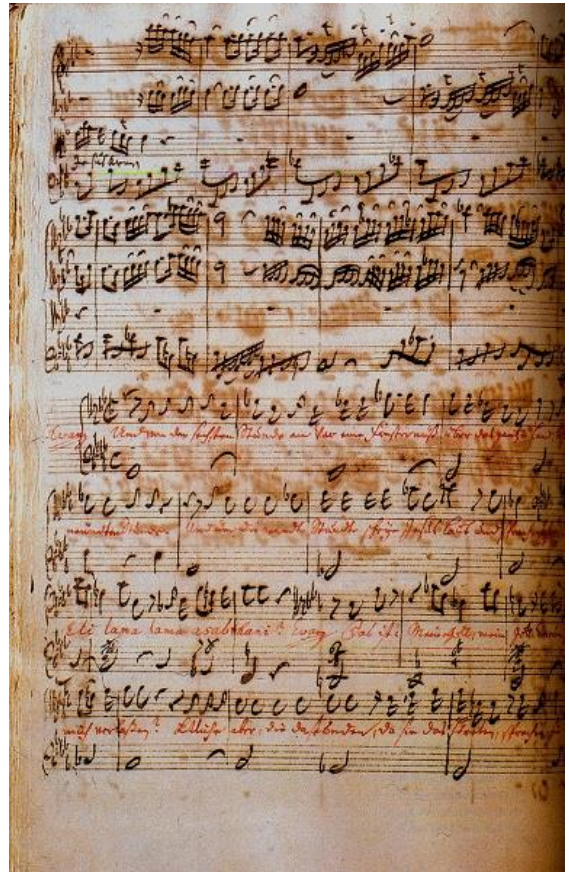 Und von der sechsten Stunde an war eine Finsterniß über das gantze Land
neundten Stunde. Und um die neundte Stunde schrye Jesus laut und
Eli lama lama asabthani? Evang Das ist: Mein Gott, mein Gott, warum
mich verlaßen? Etliche aber, die da stunden, da sie das höreten, sprachen